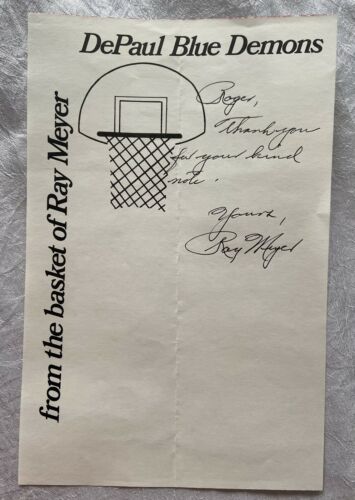 DePaul Blue Demons
from the basket of Ray Meyer
Roger,
Thank you
for your kind
note.
Yours,
Ray Meyer